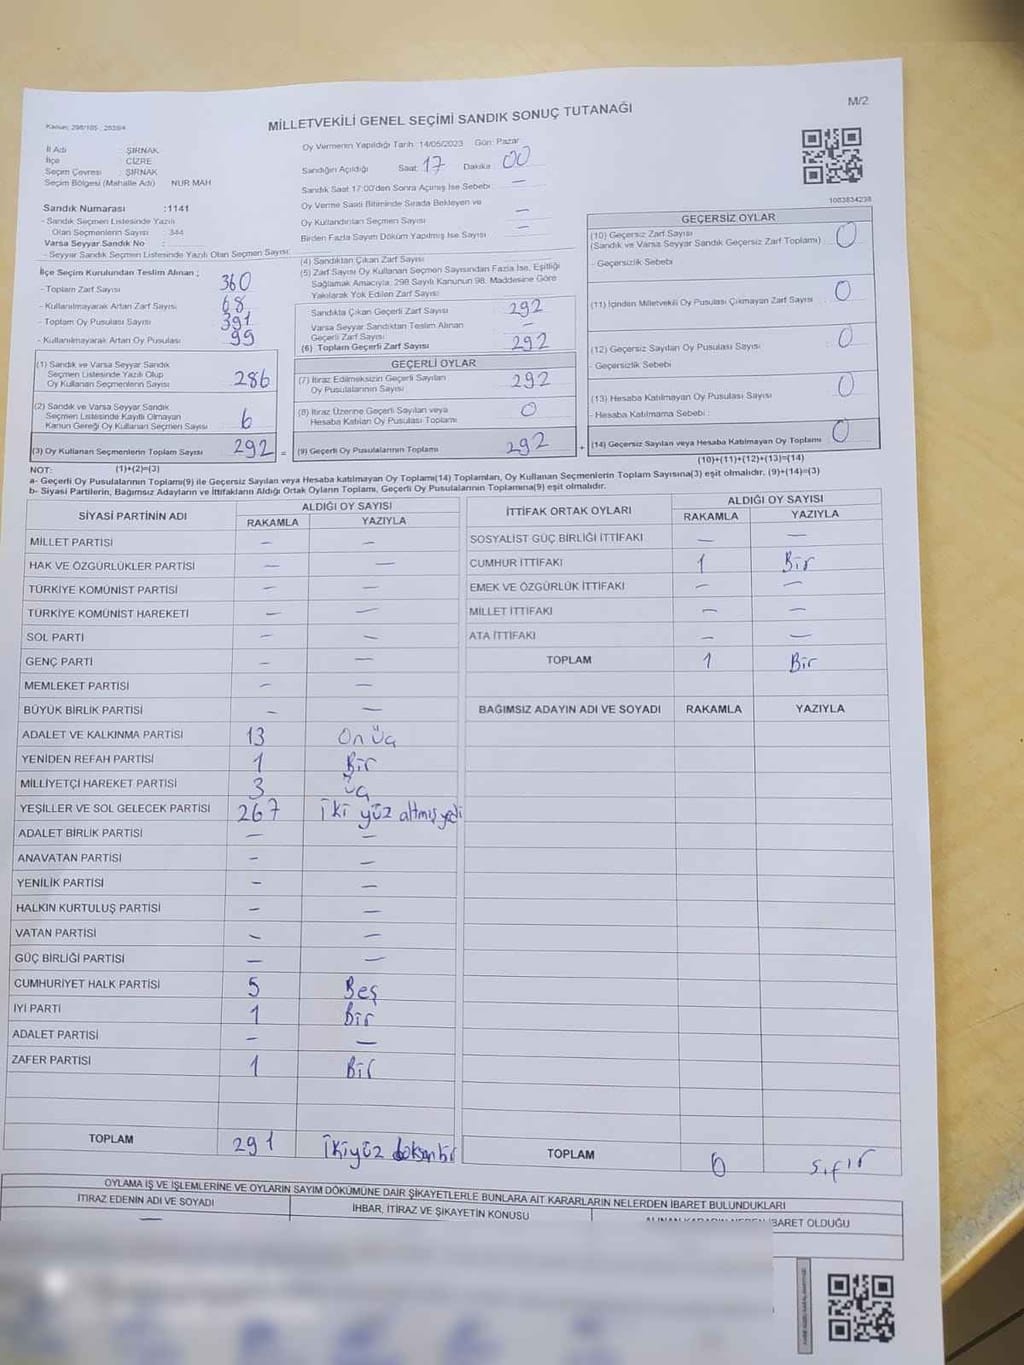 Kanun: 298/105 ; 2839/4
MİLLETVEKİLİ GENEL SEÇİMİ SANDIK SONUÇ TUTANAĞI
M/2
İl Adı : ŞIRNAK
İlçe : CİZRE
Seçim Çevresi : ŞIRNAK
Seçim Bölgesi (Mahalle Adı) NUR MAH
Sandık Numarası :1141
- Sandık Seçmen Listesinde Yazılı
Olan Seçmenlerin Sayısı : 344
Varsa Seyyar Sandık No :
- Seyyar Sandık Seçmen Listesinde Yazılı Olan Seçmen Sayısı:
Oy Vermenin Yapıldığı Tarih: 14/05/2023 Gün: Pazar
Sandığın Açıldığı Saat: 17 Dakika: 00
Sandık Saat 17:00'den Sonra Açılmış İse Sebebi : —
Oy Verme Saati Bitiminde Sırada Bekleyen ve
Oy Kullandırılan Seçmen Sayısı —
Birden Fazla Sayım Döküm Yapılmış İse Sayısı —
1083834238
İlçe Seçim Kurulundan Teslim Alınan ;
- Toplam Zarf Sayısı 360
- Kullanılmayarak Artan Zarf Sayısı 68
- Toplam Oy Pusulası Sayısı 391
- Kullanılmayarak Artan Oy Pusulası 99
(1) Sandık ve Varsa Seyyar Sandık
Seçmen Listesinde Yazılı Olup
Oy Kullanan Seçmenlerin Sayısı 286
(2) Sandık ve Varsa Seyyar Sandık
Seçmen Listesinde Kayıtlı Olmayan
Kanun Gereği Oy Kullanan Seçmenlerin Sayısı 6
(3) Oy Kullanan Seçmenlerin Toplam Sayısı 292 =
(4) Sandıktan Çıkan Zarf Sayısı
(5) Zarf Sayısı Oy Kullanan Seçmen Sayısından Fazla İse, Eşitliği
Sağlamak Amacıyla, 298 Sayılı Kanunun 98. Maddesine Göre
Yakılarak Yok Edilen Zarf Sayısı
Sandıkta Çıkan Geçerli Zarf Sayısı 292
Varsa Seyyar Sandıktan Teslim Alınan
Geçerli Zarf Sayısı —
(6) Toplam Geçerli Zarf Sayısı 292
GEÇERLİ OYLAR
(7) İtiraz Edilmeksizin Geçerli Sayılan
Oy Pusulalarının Sayısı 292
(8) İtiraz Üzerine Geçerli Sayılan veya
Hesaba Katılan Oy Pusulası Toplamı 0
(9) Geçerli Oy Pusulalarının Toplamı 292 +
GEÇERSİZ OYLAR
(10) Geçersiz Zarf Sayısı
(Sandık ve Varsa Seyyar Sandık Geçersiz Zarf Toplamı) 0
- Geçersizlik Sebebi :
(11) İçinden Milletvekili Oy Pusulası Çıkmayan Zarf Sayısı 0
(12) Geçersiz Sayılan Oy Pusulası Sayısı 0
- Geçersizlik Sebebi :
(13) Hesaba Katılmayan Oy Pusulası Sayısı 0
- Hesaba Katılmama Sebebi :
(14) Geçersiz Sayılan veya Hesaba Katılmayan Oy Toplamı 0
NOT: (1)+(2)=(3)
(10)+(11)+(12)+(13)=(14)
a- Geçerli Oy Pusulalarının Toplamı(9) ile Geçersiz Sayılan veya Hesaba katılmayan Oy Toplamı(14) Toplamları, Oy Kullanan Seçmenlerin Toplam Sayısına(3) eşit olmalıdır. (9)+(14)=(3)
b- Siyasi Partilerin, Bağımsız Adayların ve İttifakların Aldığı Ortak Oyların Toplamı, Geçerli Oy Pusulalarının Toplamına(9) eşit olmalıdır.
SİYASİ PARTİNİN ADI ALDIĞI OY SAYISI
RAKAMLA YAZIYLA
MİLLET PARTİSİ — —
HAK VE ÖZGÜRLÜKLER PARTİSİ — —
TÜRKİYE KOMÜNİST PARTİSİ — —
TÜRKİYE KOMÜNİST HAREKETİ — —
SOL PARTİ — —
GENÇ PARTİ — —
MEMLEKET PARTİSİ — —
BÜYÜK BİRLİK PARTİSİ — —
ADALET VE KALKINMA PARTİSİ 13 On Üç
YENİDEN REFAH PARTİSİ 1 Bir
MİLLİYETÇİ HAREKET PARTİSİ 3 Üç
YEŞİLLER VE SOL GELECEK PARTİSİ 267 İki yüz altmış yedi
ADALET BİRLİK PARTİSİ — —
ANAVATAN PARTİSİ — —
YENİLİK PARTİSİ — —
HALKIN KURTULUŞ PARTİSİ — —
VATAN PARTİSİ — —
GÜÇ BİRLİĞİ PARTİSİ — —
CUMHURİYET HALK PARTİSİ 5 Beş
İYİ PARTİ 1 Bir
ADALET PARTİSİ — —
ZAFER PARTİSİ 1 Bir
TOPLAM 291 İkiyüz doksanbir
İTTİFAK ORTAK OYLARI ALDIĞI OY SAYISI
RAKAMLA YAZIYLA
SOSYALİST GÜÇ BİRLİĞİ İTTİFAKI — —
CUMHUR İTTİFAKI 1 Bir
EMEK VE ÖZGÜRLÜK İTTİFAKI — —
MİLLET İTTİFAKI — —
ATA İTTİFAKI — —
TOPLAM 1 Bir
BAĞIMSIZ ADAYIN ADI VE SOYADI RAKAMLA YAZIYLA
TOPLAM 0 Sıfır
OYLAMA İŞ VE İŞLEMLERİNE VE OYLARIN SAYIM DÖKÜMÜNE DAİR ŞİKAYETLERLE BUNLARA AİT KARARLARIN NELERDEN İBARET BULUNDUKLARI
İTİRAZ EDENİN ADI VE SOYADI İHBAR, İTİRAZ VE ŞİKAYETİN KONUSU ALINAN KARARIN NEDEN İBARET OLDUĞU
—